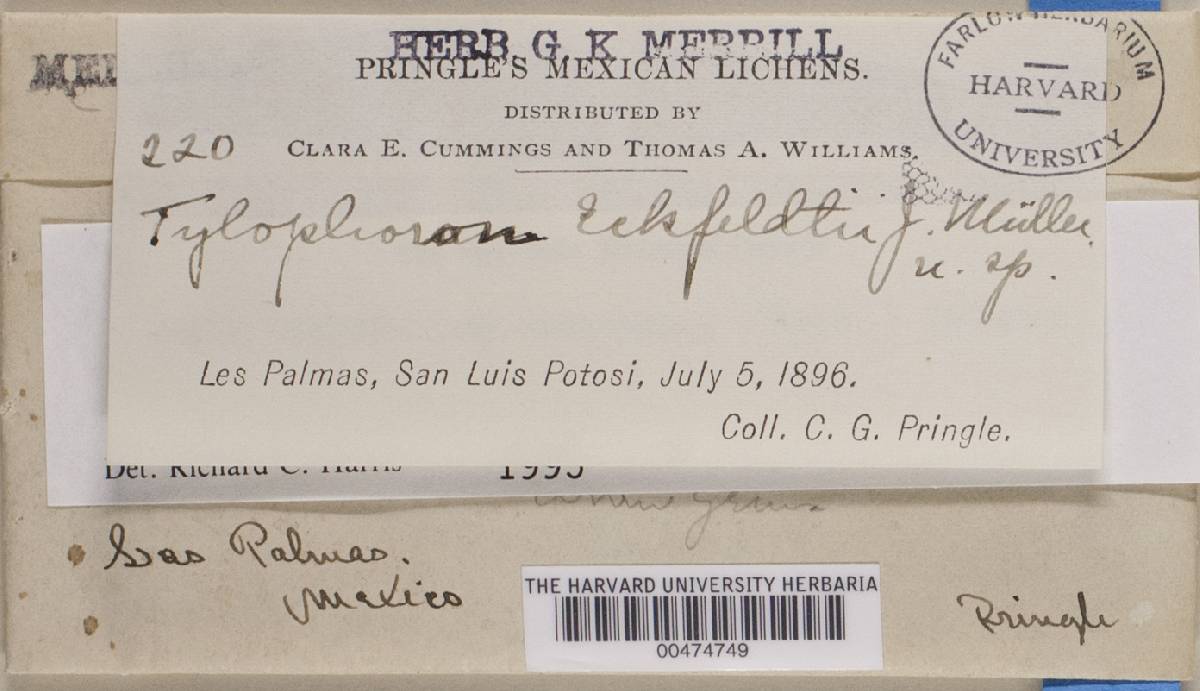 HERB. G. K. MERRILL
PRINGLE'S MEXICAN LICHENS.
DISTRIBUTED BY
220 CLARA E. CUMMINGS AND THOMAS A. WILLIAMS.
FARLOW HERBARIUM
HARVARD
UNIVERSITY
Tylophoron Eckfeldtii J. Müller.
n. sp.
Les Palmas, San Luis Potosi, July 5, 1896.
Coll. C. G. Pringle.
Det. Richard C. Harris 1995
Las Palmas.
Mexico
Pringle
THE HARVARD UNIVERSITY HERBARIA
00474749